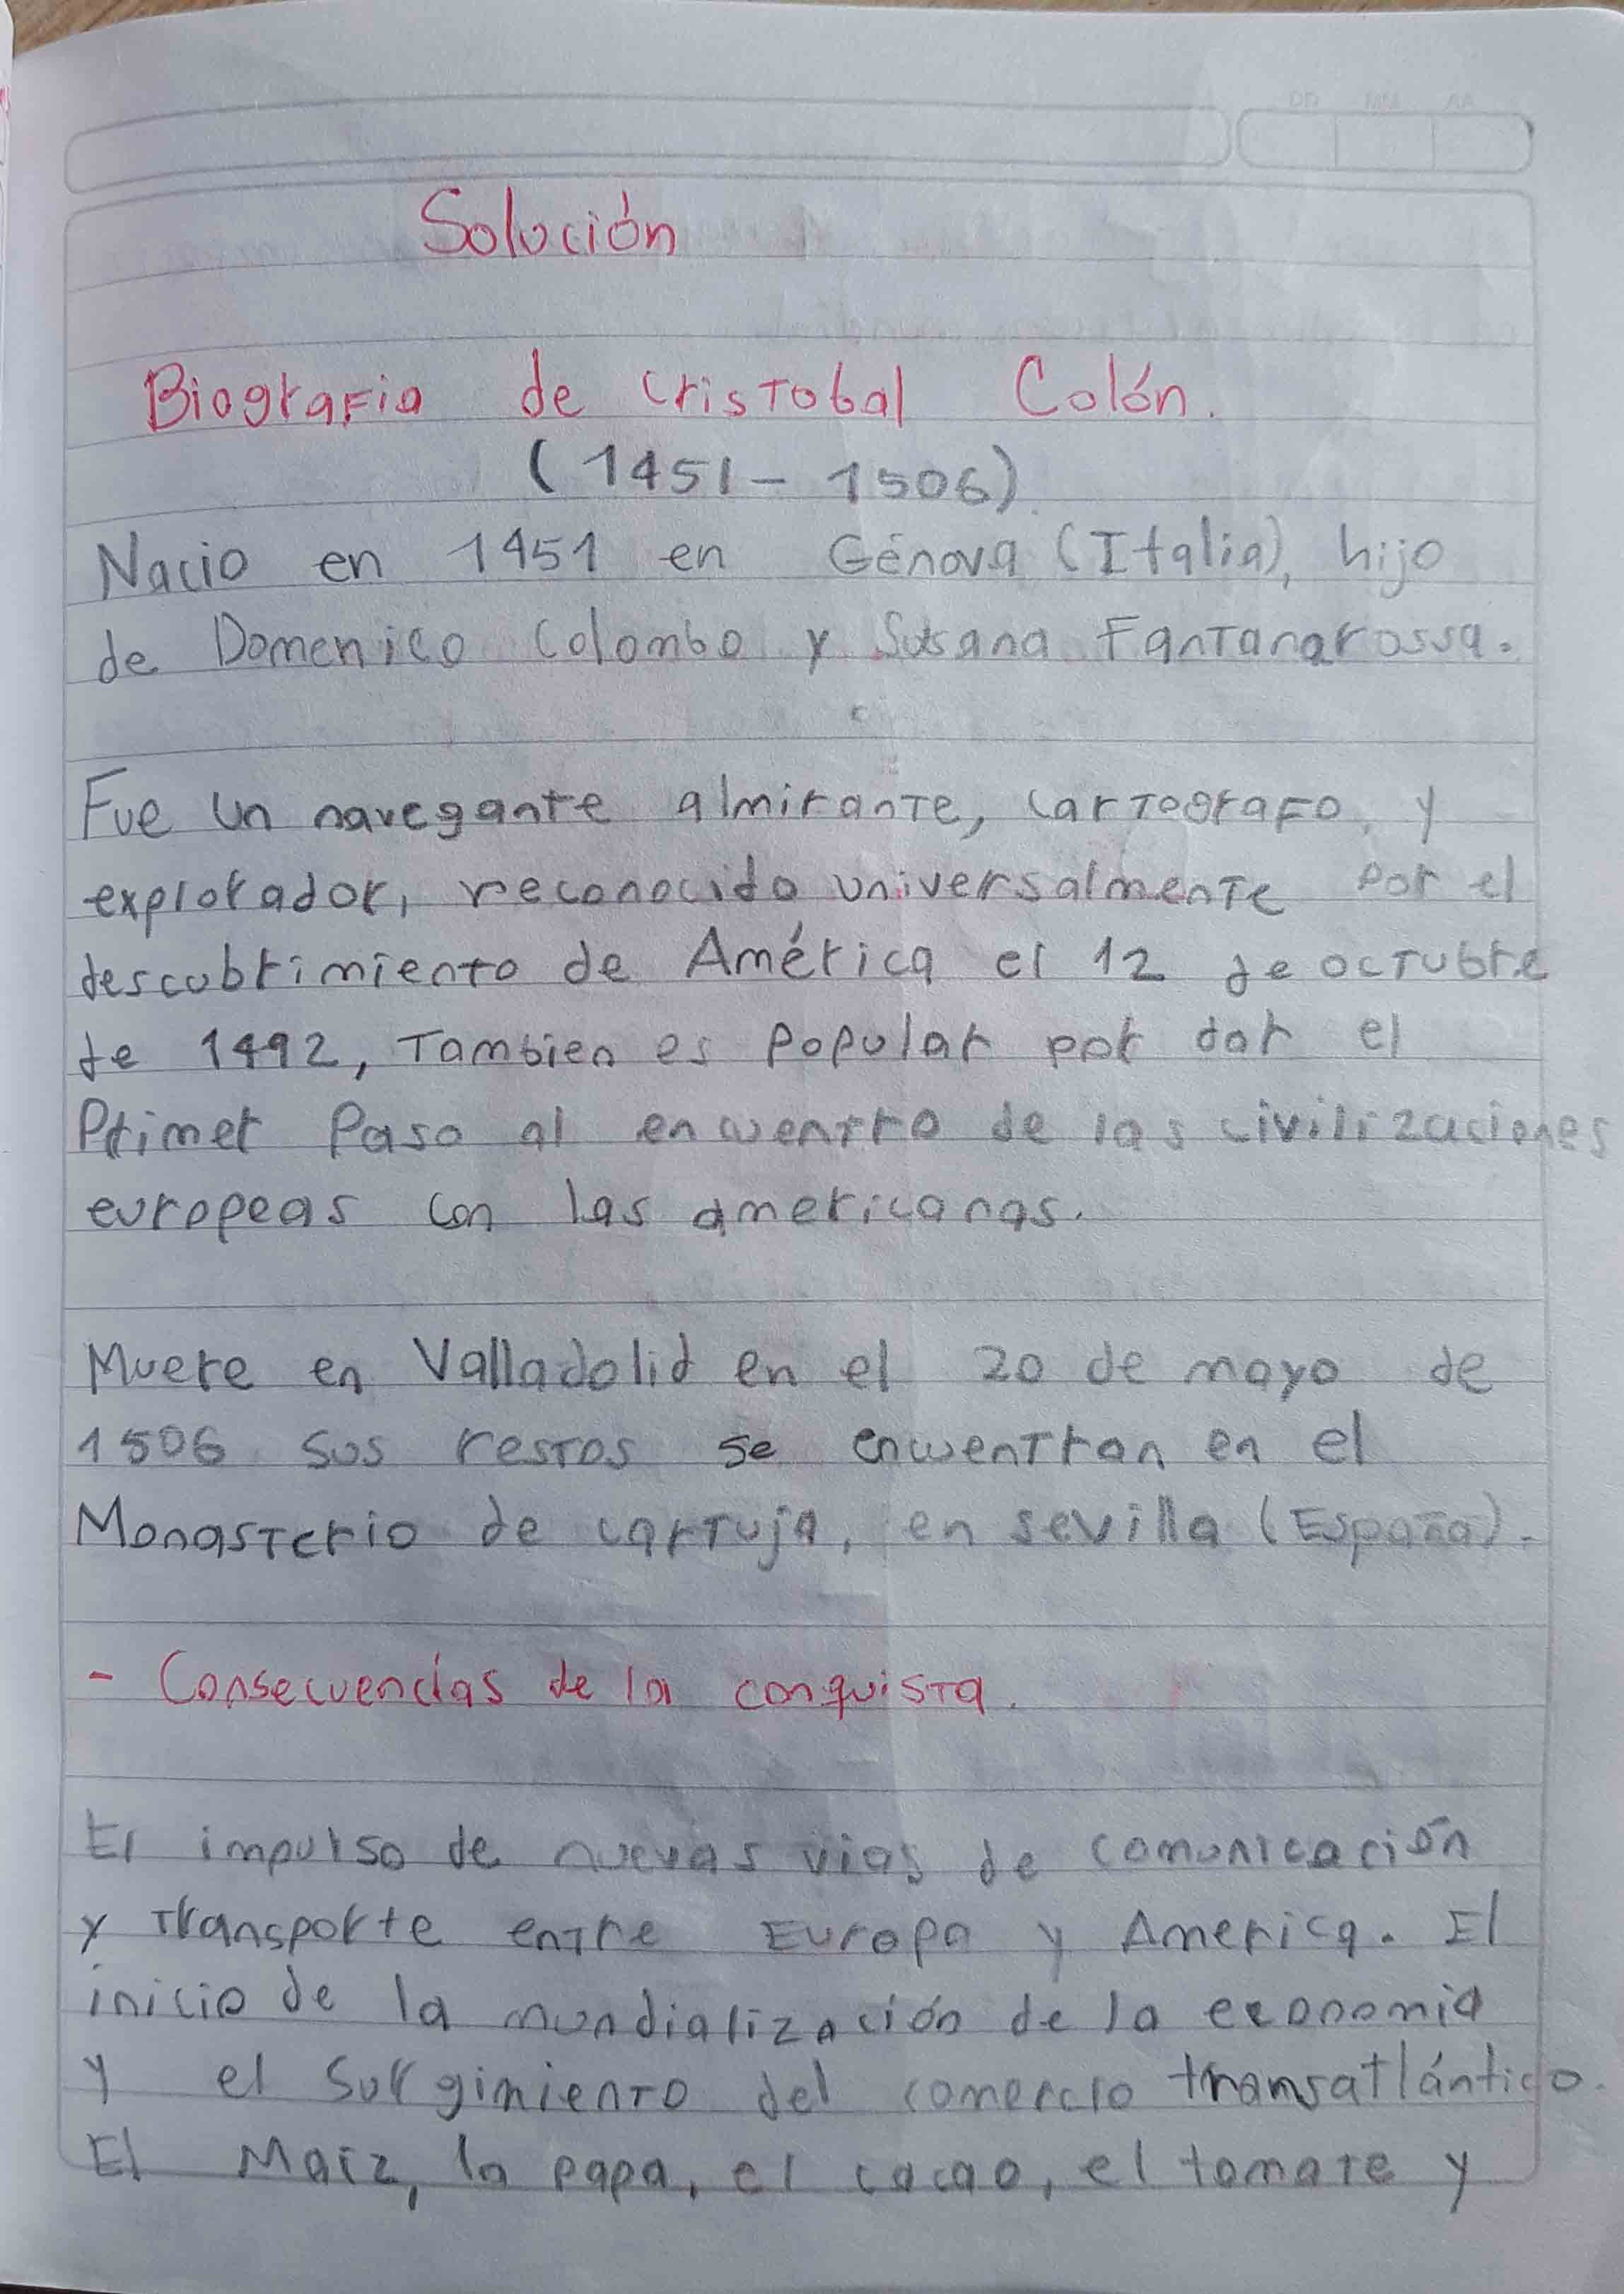 DD MM AA
Solución
Biografia de cristobal Colón.
(1451 - 1506).
Nacio en 1451 en Génova (Italia), hijo
de Domenico Colombo y Susana Fantanarossa.
Fue un navegante almirante, cartografo, y
explorador, reconocido universalmente por el
descubrimiento de América el 12 de octubre
de 1492, Tambien es popular por dar el
Primer Paso al encuentro de las civilizaciones
europeas con las americanas.
Muere en Valladolid en el 20 de mayo de
1506 sus restos se encuentran en el
Monasterio de cartuja, en sevilla (España).
- Consecuencias de la conquista.
El impulso de nuevas vias de comunicación
y transporte entre Europa y America. El
inicio de la mundialización de la economia
y el surgimiento del comercio transatlántico.
El Maiz, la papa, el cacao, el tomate y